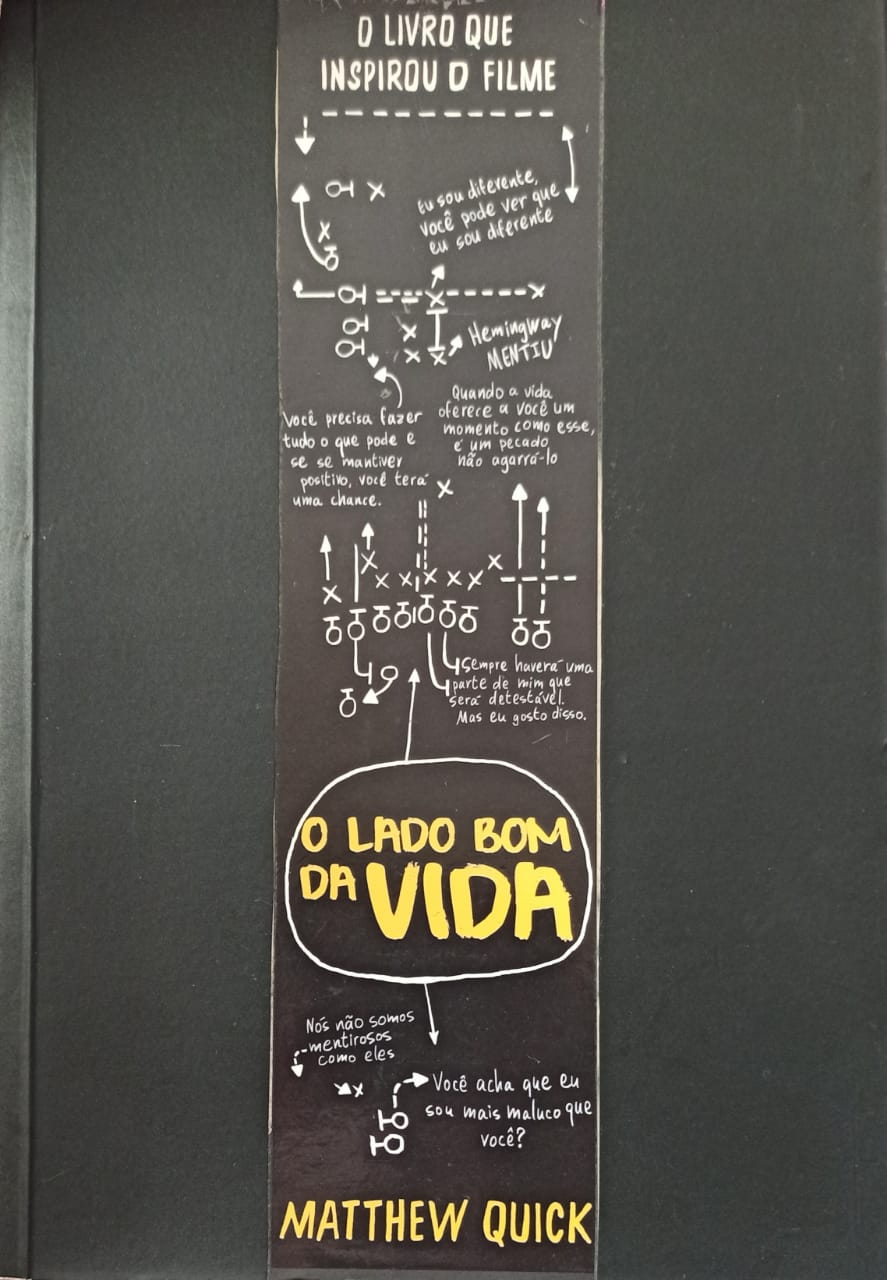 O LIVRO QUE
INSPIROU O FILME
Eu sou diferente,
você pode ver que
eu sou diferente
Hemingway
MENTIU
Você precisa fazer
tudo o que pode e
se se mantiver
positivo, você terá
uma chance.
Quando a vida
oferece a você um
momento como esse,
é um pecado
não agarrá-lo
Sempre haverá uma
parte de mim que
será detestável.
Mas eu gosto disso.
O LADO BOM
DA VIDA
Nós não somos
mentirosos
como eles
Você acha que eu
sou mais maluco que
você?
MATTHEW QUICK